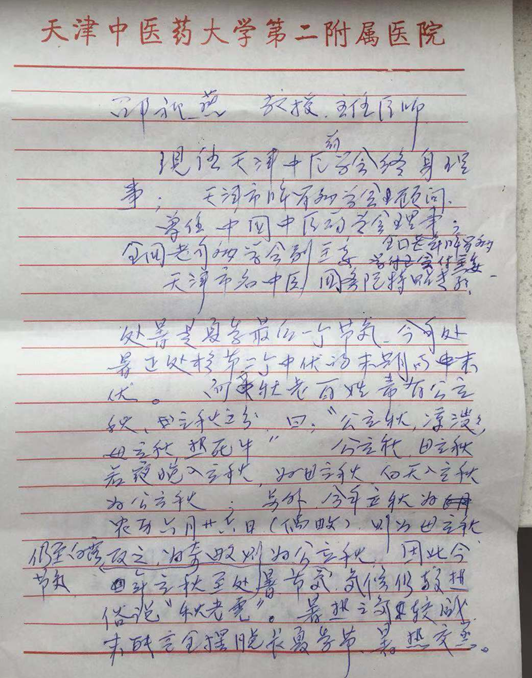 天津中医药大学第二附属医院
教授、主任医师
现任天津中医药学会终身理
事；天津市 学会 顾问.
曾任中国中医药学会理事；
全国老年 学会副主委
天津市名中医 国务院特贴专家
处暑是夏季最后一个节气，今年处
暑正处于第二个中伏的末期的中末
伏。 秋老百姓常有公立
秋，母立秋之分，曰："公立秋，凉溲溲
母立秋热死牛" 公立秋，母立秋
若夜晚入立秋，为母立秋 白天入立秋
为公立秋；另外，今年立秋为
农历六月廿六日（偶数），则为母立秋
反之，为奇数则为公立秋，因此今
仍至白露
节气
年立秋至处暑节气，气候仍较热
俗说"秋老虎"。暑热之气较盛
未能完全摆脱长夏季节，暑热交蒸。